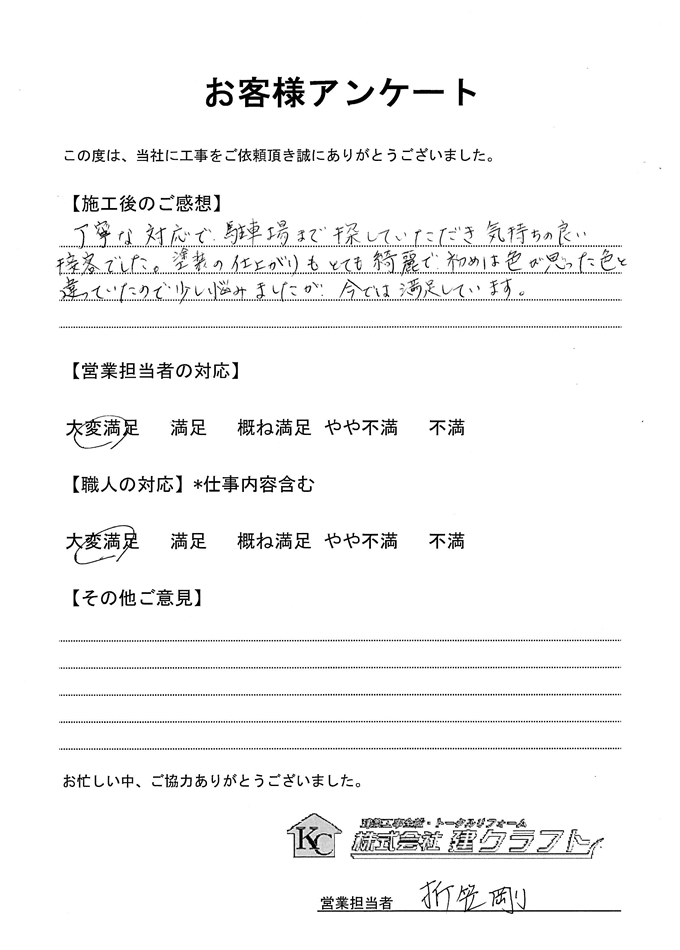 お客様アンケート
この度は、当社に工事をご依頼頂き誠にありがとうございました。
【施工後のご感想】
丁寧な対応で、駐車場まで探していただき気持ちの良い
接客でした。塗装の仕上がりもとても綺麗で、初めは色が思った色と
違っていたので少し悩みましたが、今では満足しています。
【営業担当者の対応】
大変満足 満足 概ね満足 やや不満 不満
【職人の対応】*仕事内容含む
大変満足 満足 概ね満足 やや不満 不満
【その他ご意見】
お忙しい中、ご協力ありがとうございました。
KC
建築工事全般・トータルリフォーム
株式会社 建クラフト
営業担当者 折笠剛